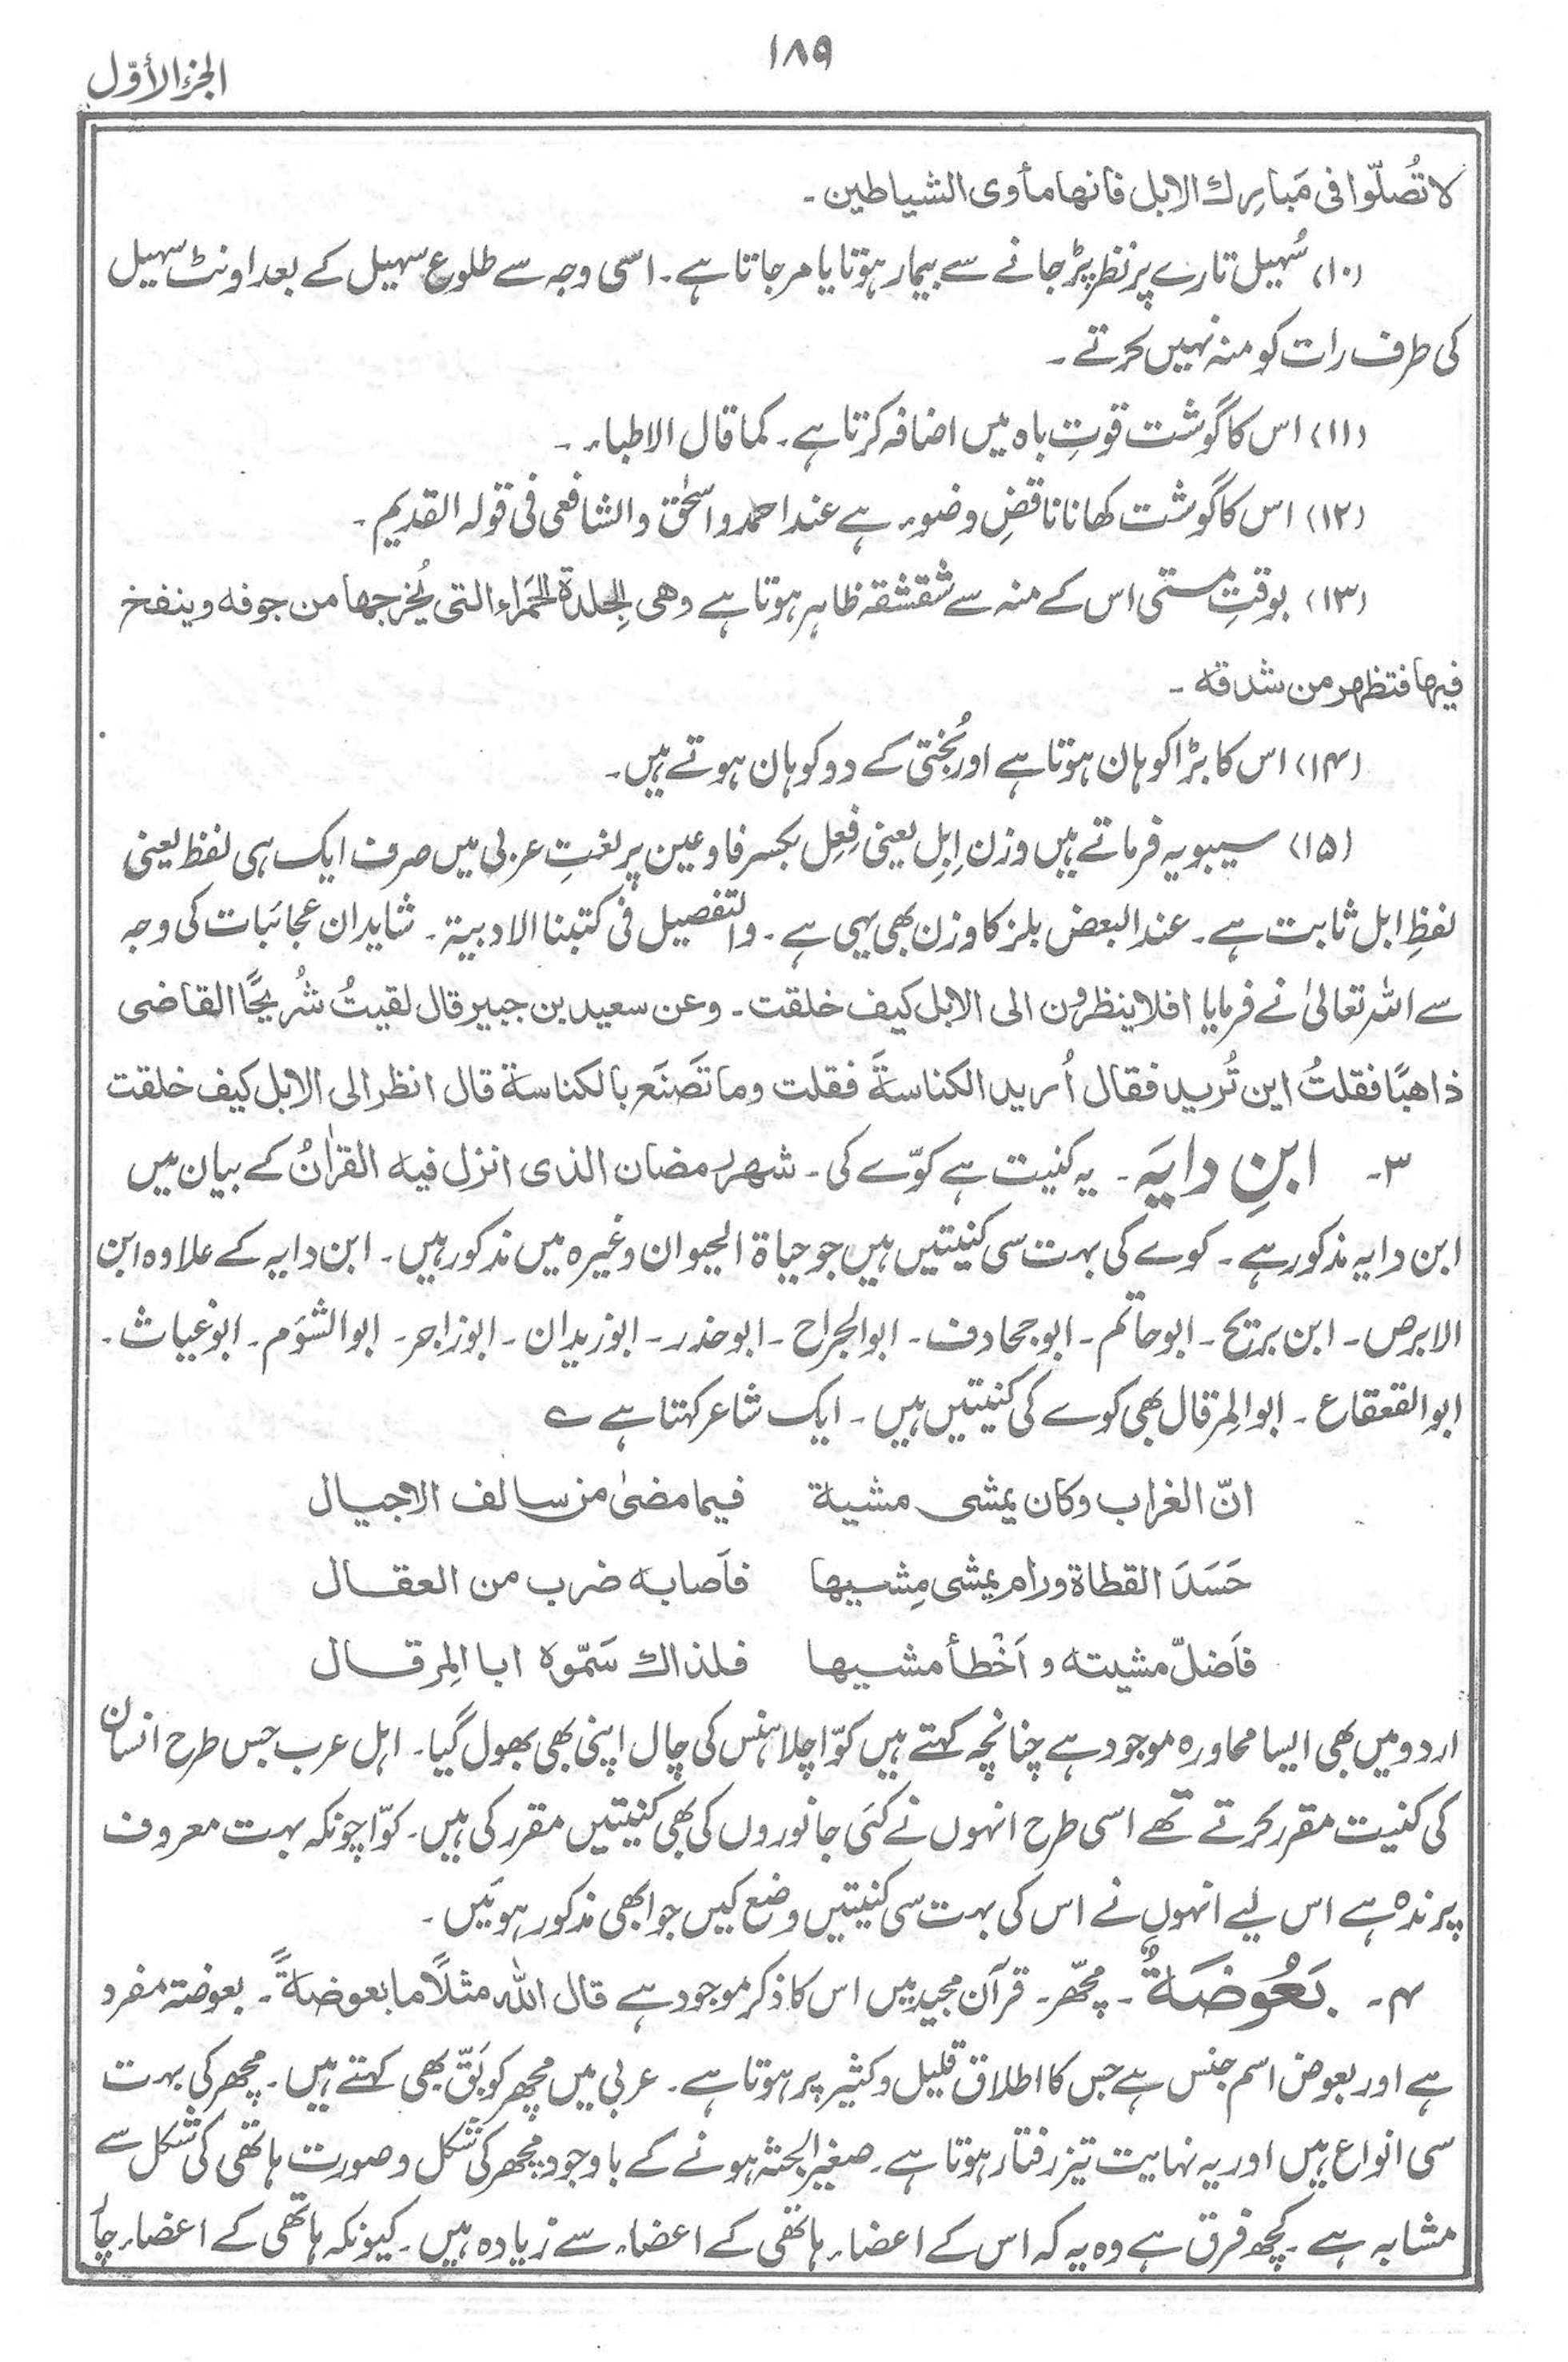 ۱۸۹
الجزء الأوّل
لا تُصلّوا فی مَبارِك الابل فانھا مأوی الشیاطین۔
(۱۰) سُہیل تارے پر نظر پڑجانے سے بیمار ہوتا یا مرجاتا ہے۔ اسی وجہ سے طلوع سہیل کے بعد اونٹ سہیل
کی طرف رات کو منہ نہیں کرتے۔
(۱۱) اس کا گوشت قوتِ باہ میں اضافہ کرتا ہے۔ کما قال الاطباء۔
(۱۲) اس کا گوشت کھانا ناقضِ وضوء ہے عند احمد و اسحٰق و الشافعی فی قولہ القدیم۔
(۱۳) بوقتِ مستی اس کے منہ سے شقشقہ ظاہر ہوتا ہے وھی الجِلدة الحَمراء التی یُخرجھا من جوفہ وینفخ
فیھا فتظھر من شدقہ۔
(۱۴) اس کا بڑا کوہان ہوتا ہے اور بُختی کے دو کوہان ہوتے ہیں۔
(۱۵) سیبویہ فرماتے ہیں وزن اِبِل یعنی فِعِل بکسر فا و عین پر لغتِ عربی میں صرف ایک ہی لفظ یعنی
لفظِ ابل ثابت ہے۔ عند البعض بلز کا وزن بھی یہی ہے۔ والتفصیل فی کتبنا الادبیة۔ شاید ان عجائبات کی وجہ
سے اللہ تعالیٰ نے فرمایا افلا ینظرون الی الابل کیف خلقت۔ وعن سعید بن جبیر قال لقیتُ شُریحًا القاضی
ذاھبًا فقلتُ این تُرید فقال اُرید الکناسةَ فقلت وما تَصنَع بالکناسة قال انظر الی الابل کیف خلقت
۳۔ ابنِ دایَہ۔ یہ کنیت ہے کوّے کی۔ شھر رمضان الذی انزل فیہ القراٰنُ کے بیان میں
ابن دایہ مذکور ہے۔ کوے کی بہت سی کنیتیں ہیں جو حیاة الحیوان وغیرہ میں مذکور ہیں۔ ابن دایہ کے علاوہ ابن
الابرص۔ ابن بریح۔ ابو حاتم۔ ابو جحادف۔ ابو الجراح۔ ابو حذر۔ ابو زیدان۔ ابو زاجر۔ ابو الشؤم۔ ابو غیاث۔
ابو القعقاع۔ ابو المِرقال بھی کوے کی کنیتیں ہیں۔ ایک شاعر کہتا ہے ے
انّ الغراب وکان یمشی مشیة فیما مضیٰ من سالف الاجیال
حَسَدَ القطاة ورام یمشی مِشیھا فاَصابہ ضرب من العقال
فاَضلّ مشیتہ و اَخْطأ مشیھا فلذاك سَمّوہ ابا المِرقال
اردو میں بھی ایسا محاورہ موجود ہے چنانچہ کہتے ہیں کوّا چلا ہنس کی چال اپنی بھی بھول گیا۔ اہل عرب جس طرح انسان
کی کنیت مقرر کرتے تھے اسی طرح انہوں نے کئی جانوروں کی بھی کنیتیں مقرر کی ہیں۔ کوّا چونکہ بہت معروف
پرندہ ہے اس لیے انہوں نے اس کی بہت سی کنیتیں وضع کیں جو ابھی مذکور ہوئیں۔
۴۔ بَعُوضَةٌ۔ مچھّر۔ قرآن مجید میں اس کا ذکر موجود ہے قال اللہ مثلًا ما بعوضةً۔ بعوضۃ مفرد
ہے اور بعوض اسم جنس ہے جس کا اطلاق قلیل و کثیر پر ہوتا ہے۔ عربی میں مچھر کو بَقّ بھی کہتے ہیں۔ مچھر کی بہت
سی انواع ہیں اور یہ نہایت تیز رفتار ہوتا ہے۔ صغیر الجثہ ہونے کے باوجود مچھر کی شکل و صورت ہاتھی کی شکل سے
مشابہ ہے۔ کچھ فرق ہے وہ یہ کہ اس کے اعضاء ہاتھی کے اعضاء سے زیادہ ہیں۔ کیونکہ ہاتھی کے اعضاء چار